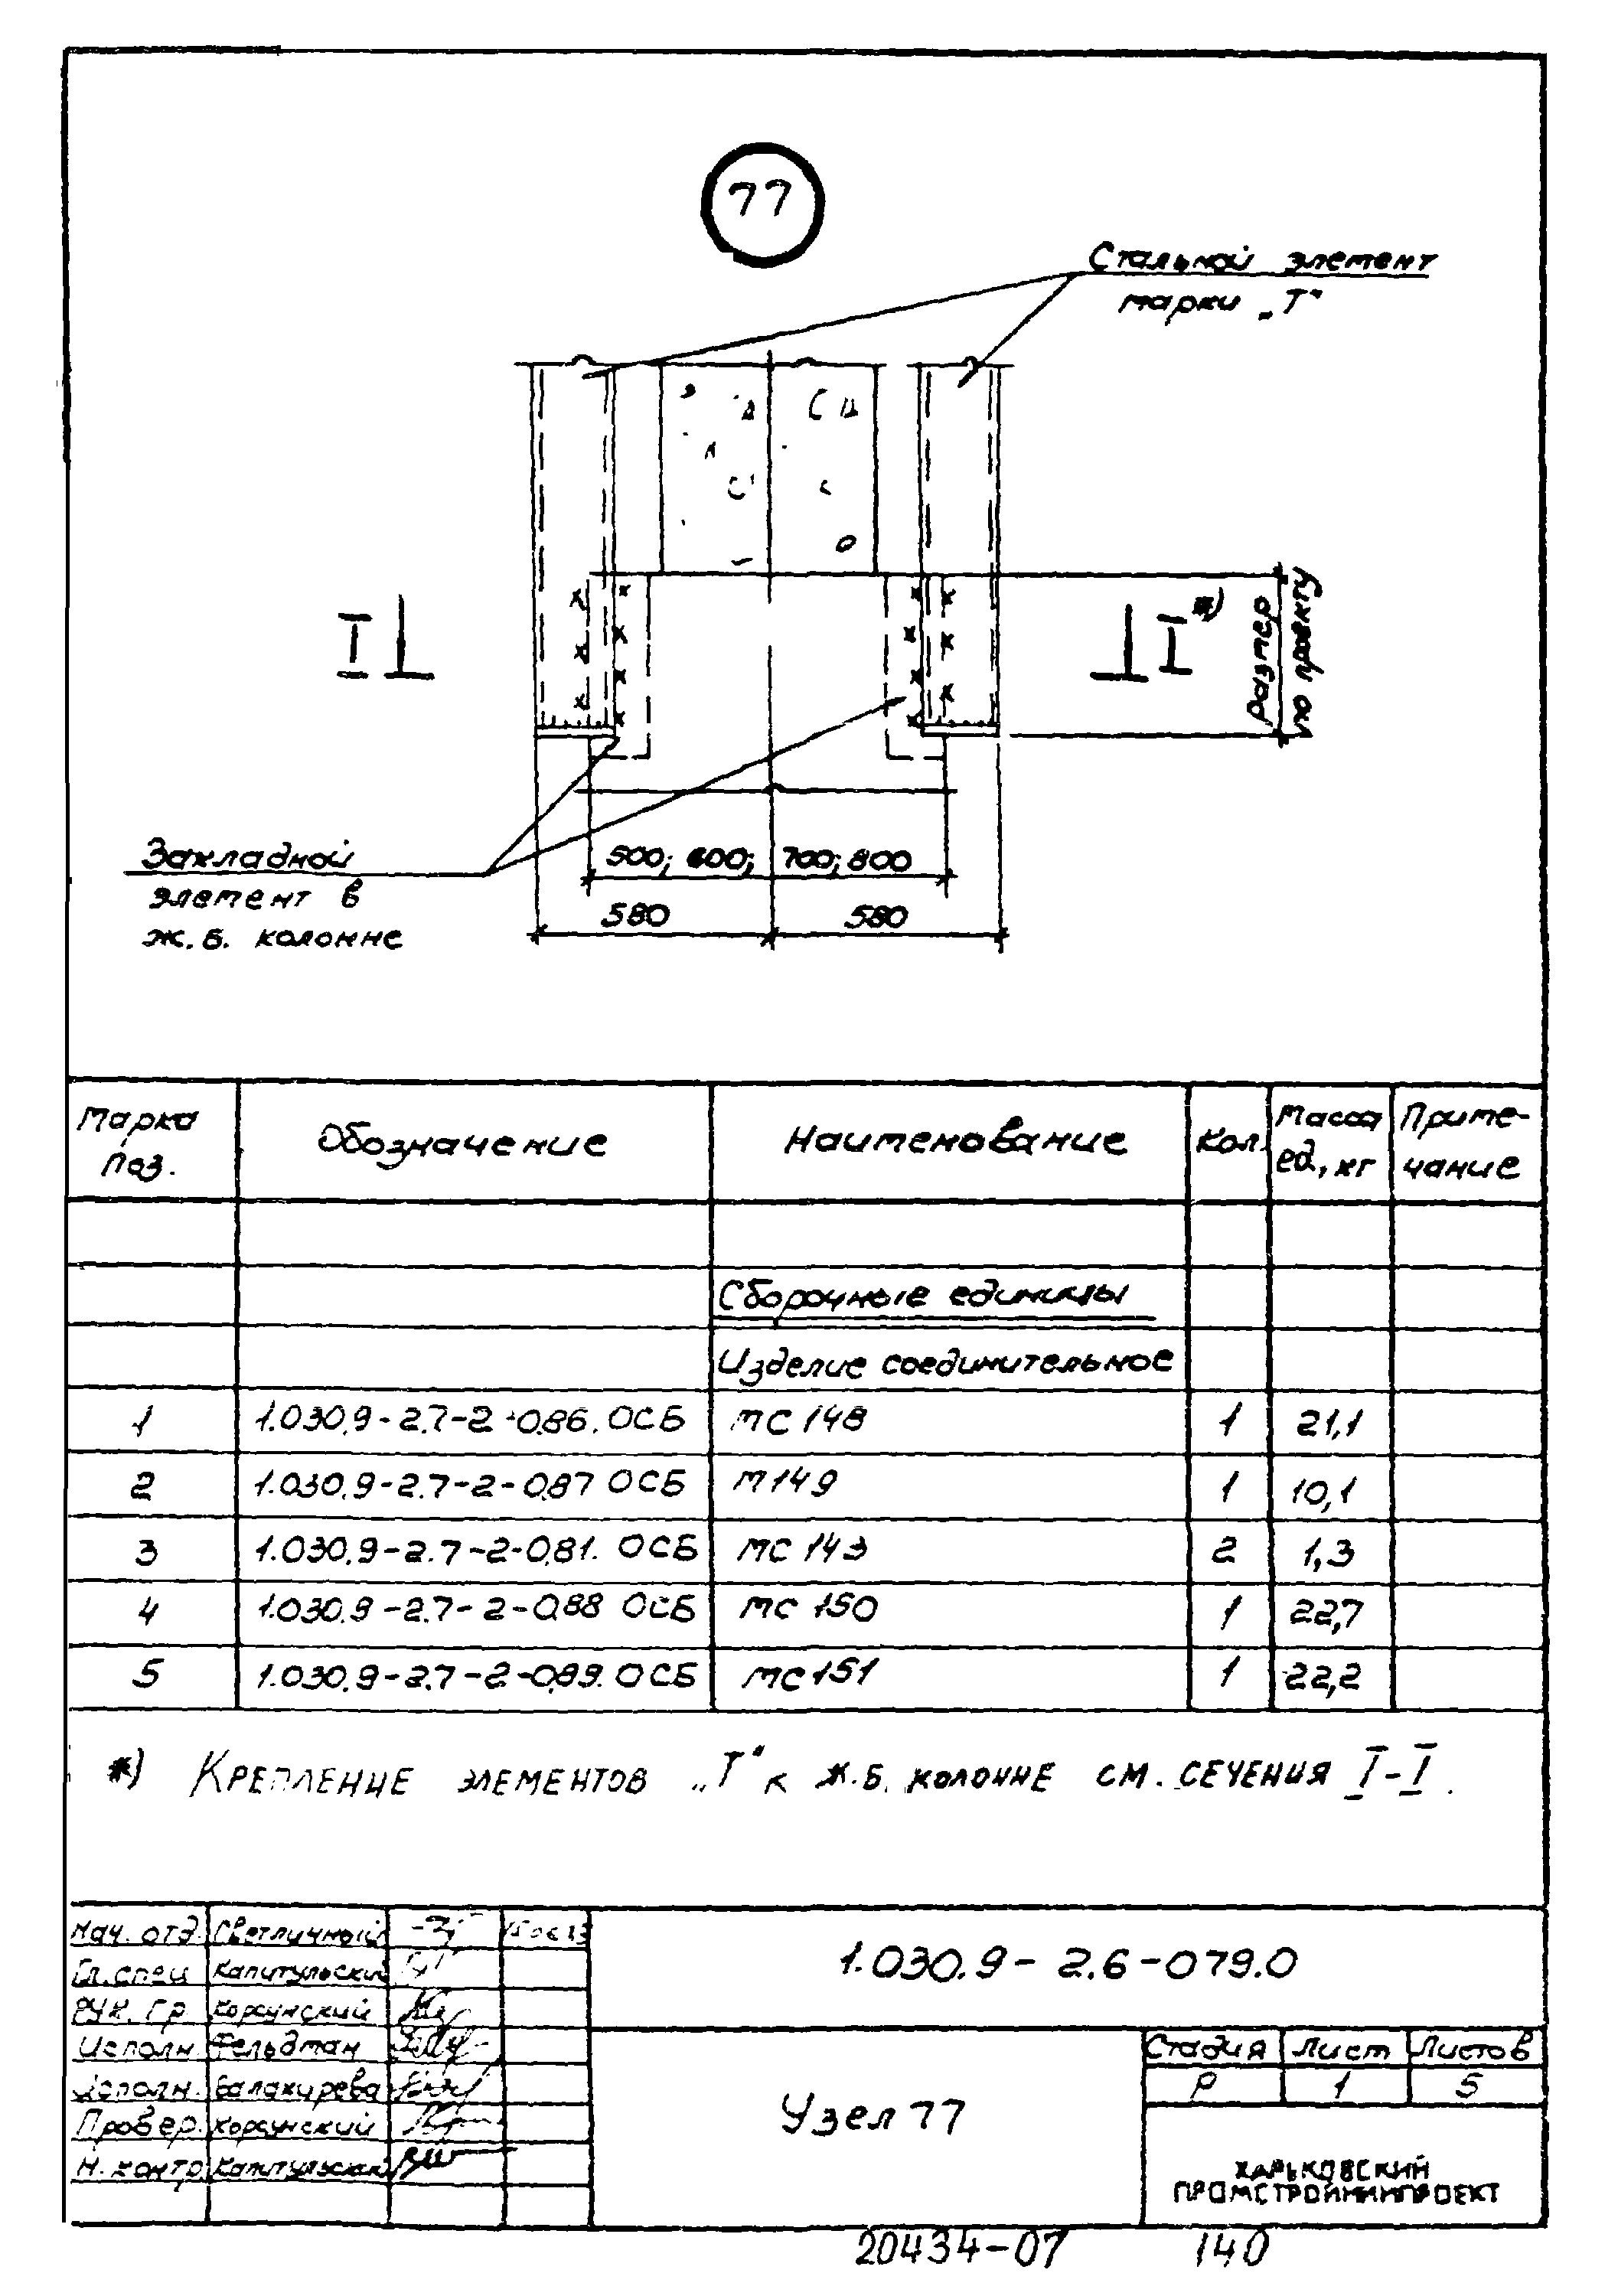 77
Стальной элемент
марки „Т"
I I *)
Размер
по проекту
Закладной
элемент в
ж.б. колонне
500; 600; 700; 800
580 580
Марка поз. Обозначение Наименование Кол. Масса ед., кг Приме-чание
Сборочные единицы
Изделие соединительное
1 1.030.9-2.7-2-086.ОСБ МС 148 1 21,1
2 1.030.9-2.7-2-087 ОСБ М149 1 10,1
3 1.030.9-2.7-2-081. ОСБ МС 143 2 1,3
4 1.030.9-2.7-2-088 ОСБ МС 150 1 22,7
5 1.030.9-2.7-2-089.ОСБ МС 151 1 22,2
*) Крепление элементов „Т" к ж.б. колонне см. сечения I-I.
Нач. отд. Светличный
Гл. спец Капитульский
Рук. гр. Корсунский
Исполн. Фельдман
Исполн. Балакирева
Провер. Корсунский
Н. контр Капитульский
1.030.9-2.6-079.0
Узел 77
Стадия Лист Листов
Р 1 5
ХАРЬКОВСКИЙ
ПРОМСТРОЙНИИПРОЕКТ
20434-07 140